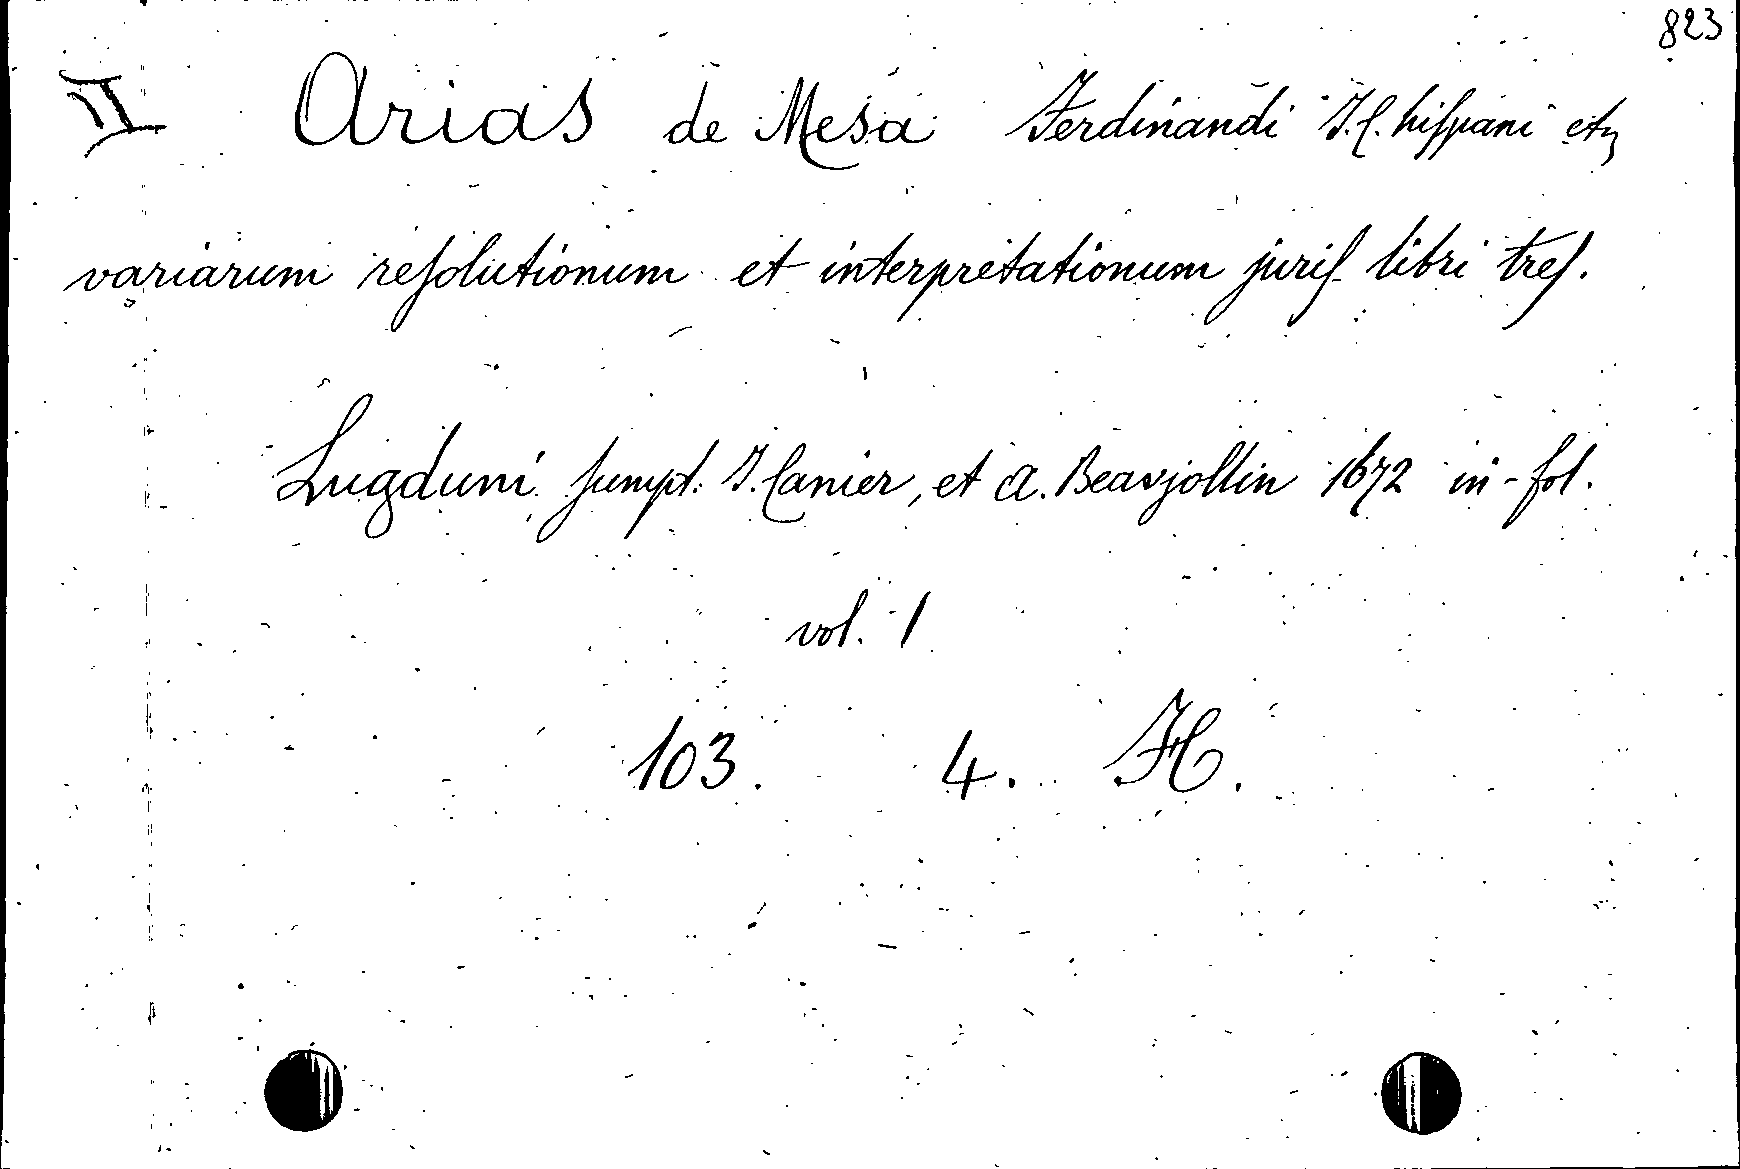 823
II Arias de Mesa Ferdinandi J.C. hiſpani etz
variarum reſolutionum et interpretationum juriſ libri treſ.
Lugduni ſumpt: J. Canier, et A. Beavjollin 1672 in-fol.
vol. 1
103. 4. H.